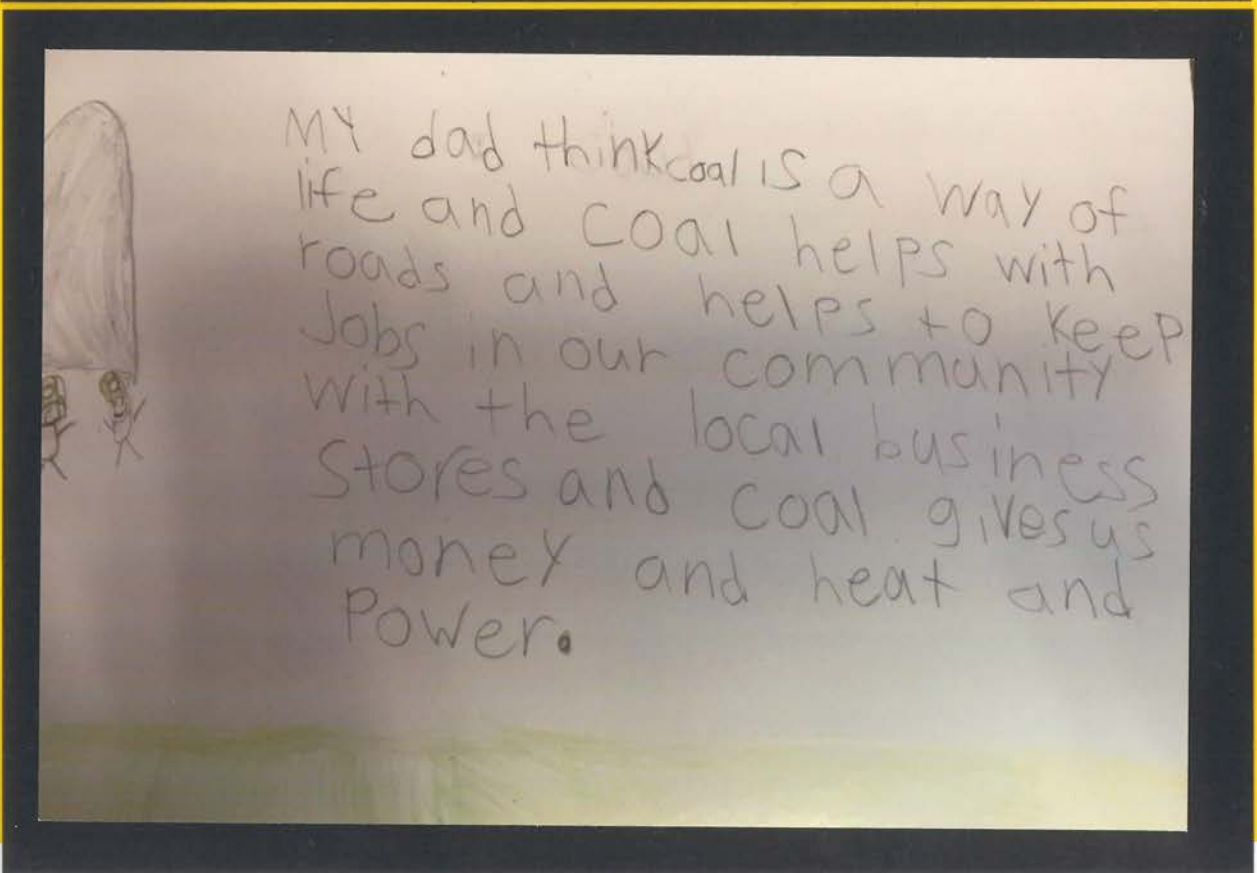 MY dad think coal is a way of
life and coal helps with
roads and helps to keep
Jobs in our community
with the local business
Stores and coal gives us
money and heat and
Power.